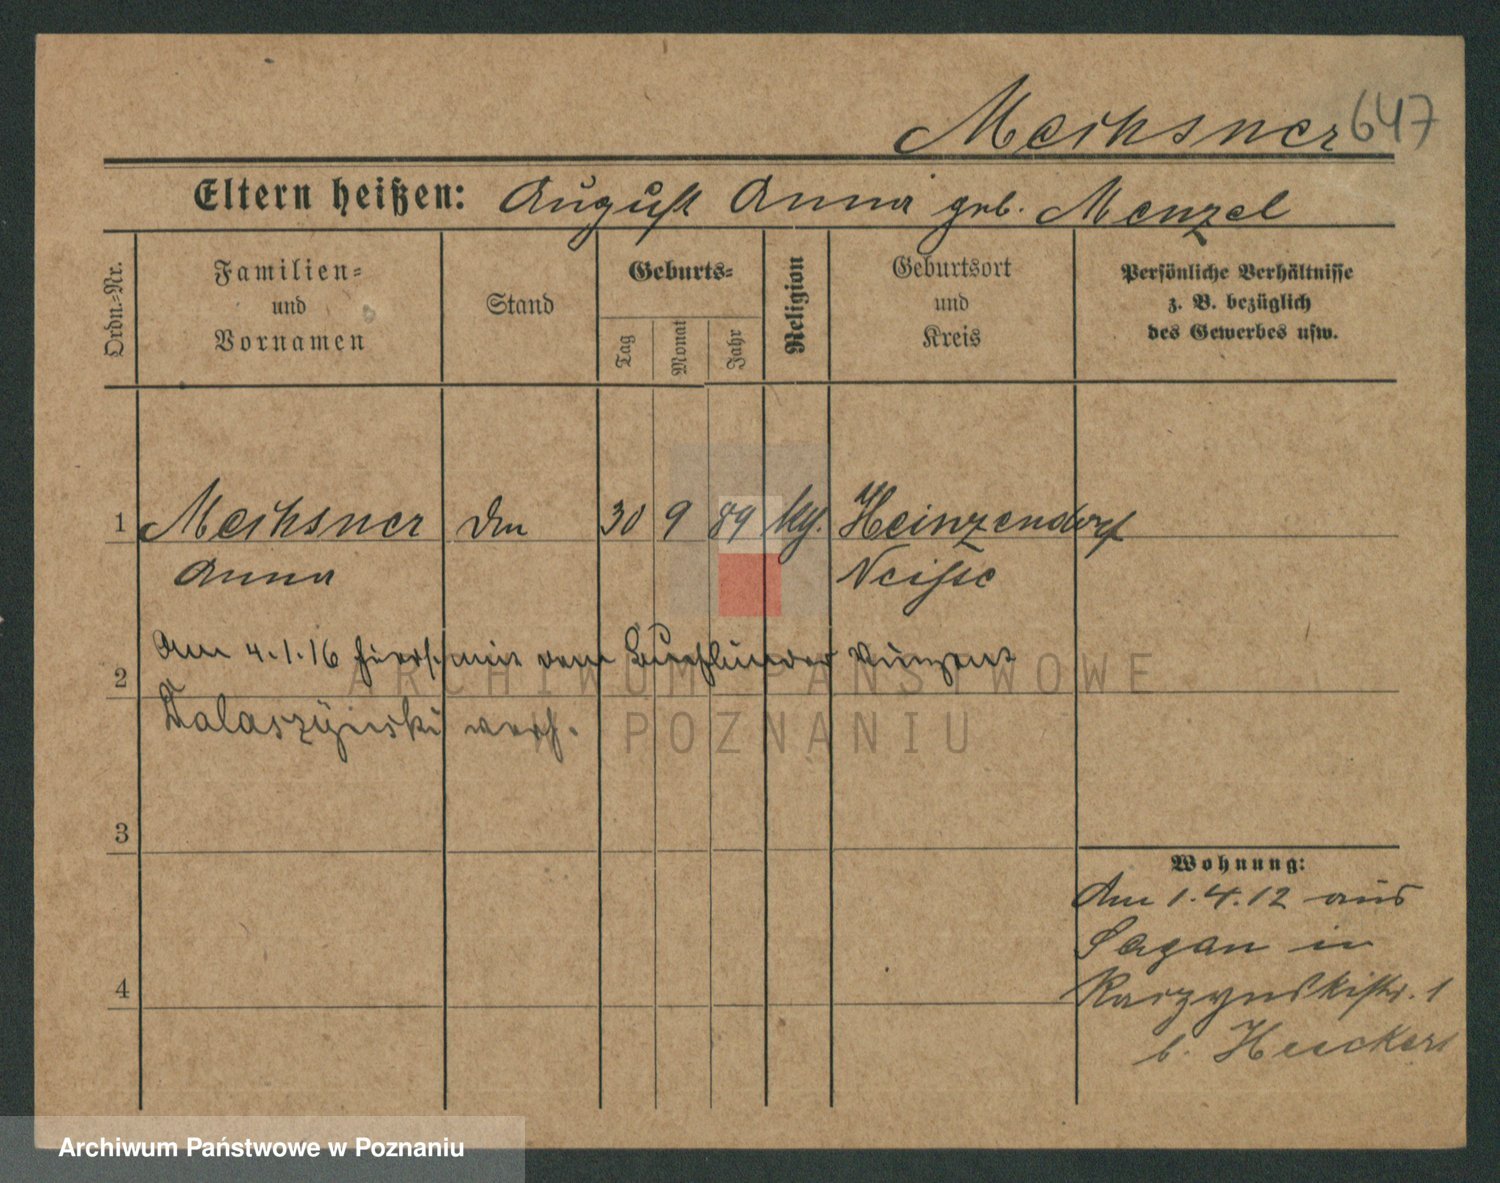 Meihsner 647
Eltern heißen: August Anna geb. Menzel
Ordn.-Nr.
Familien-
und
Vornamen
Stand
Geburts-
Tag
Monat
Jahr
Religion
Geburtsort
und
Kreis
Persönliche Verhältnisse
z. B. bezüglich
des Gewerbes usw.
1 Meihsner 30 9 89 Heinzendorf
Anna Neisse
2 Am 4.1.16 hiers. mit dem Buchbinder Vinzent
Walaszynski verh.
3
4
Wohnung:
Am 1.4.12 aus
Sagan in
Raczynskistr. 1
b. Heckert
ARCHIWUM PAŃSTWOWE
W POZNANIU
Archiwum Państwowe w Poznaniu